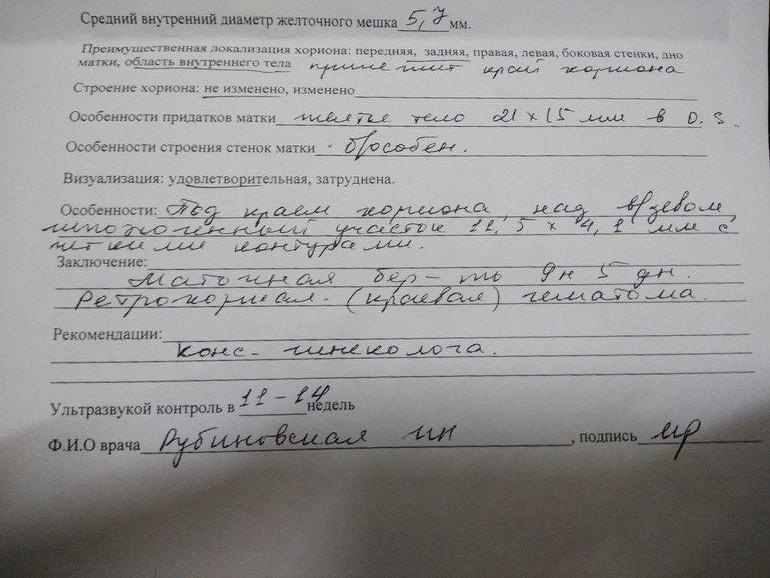 Средний внутренний диаметр желточного мешка 5,7 мм.
Преимущественная локализация хориона: передняя, задняя, правая, левая, боковая стенки, дно
матки, область внутреннего тела край хориона
Строение хориона: не изменено, изменено
Особенности придатков матки желтое тело 21 x 15 мм в O. S.
Особенности строения стенок матки б/особен.
Визуализация: удовлетворительная, затруднена.
Особенности: Под краем хориона, над в/зевом,
гипоэхогенный участок 11,5 x 4,1 мм с
четкими контурами.
Заключение:
Маточная бер-ть 9н 5 дн.
Ретрохориал. (краевая) гематома.
Рекомендации:
Конс. гинеколога.
Ультразвукой контроль в 11-14 недель
Ф.И.О врача Рубиновская ин, подпись